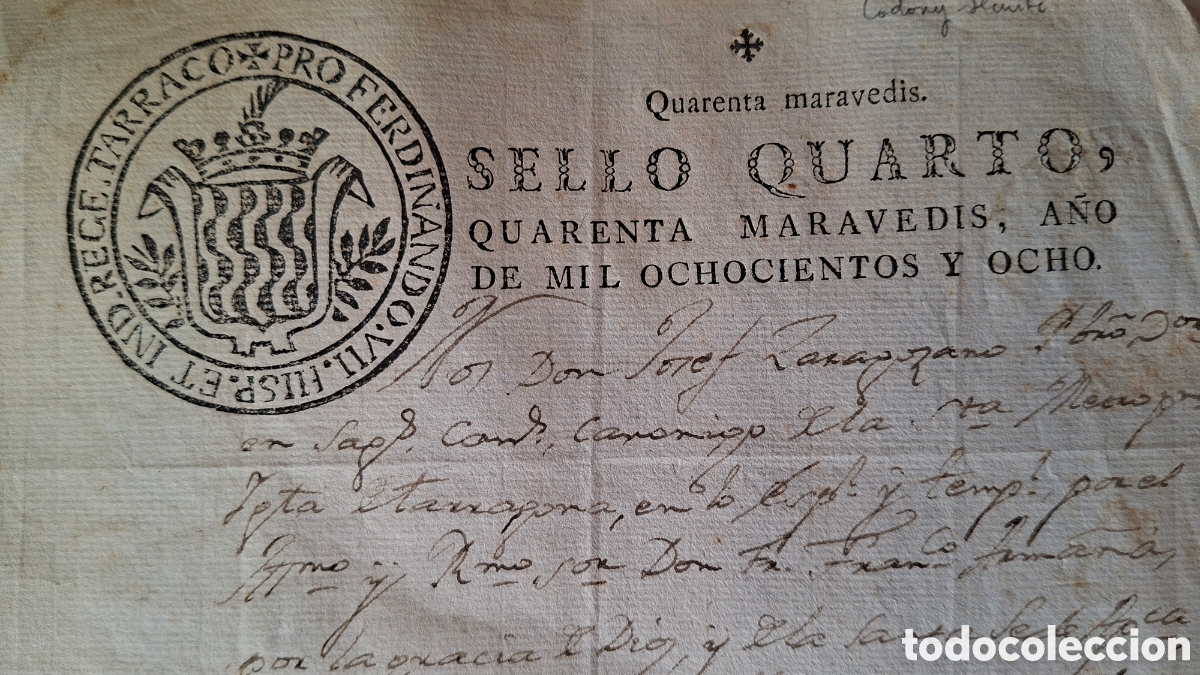 Codony
Quarenta maravedis.
SELLO QUARTO,
QUARENTA MARAVEDIS, AÑO
DE MIL OCHOCIENTOS Y OCHO.
PRO FERDINANDO.VII.HISP.ET IND.REGE.TARRACO
Nos Don Josef Zaragozano
en Sags. Cans. Canonigo de la Sta Metrop
Tarragona, en lo Espl. y templ. por el
Illmo y Rmo. Sor. Don Fr. Franco
por la gracia de Dios, y de la Santa Sede
todocoleccion